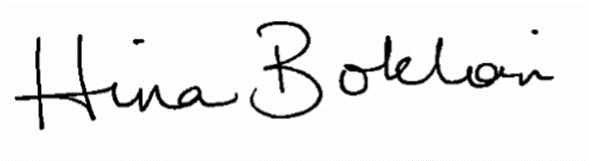 Hina Bokhari